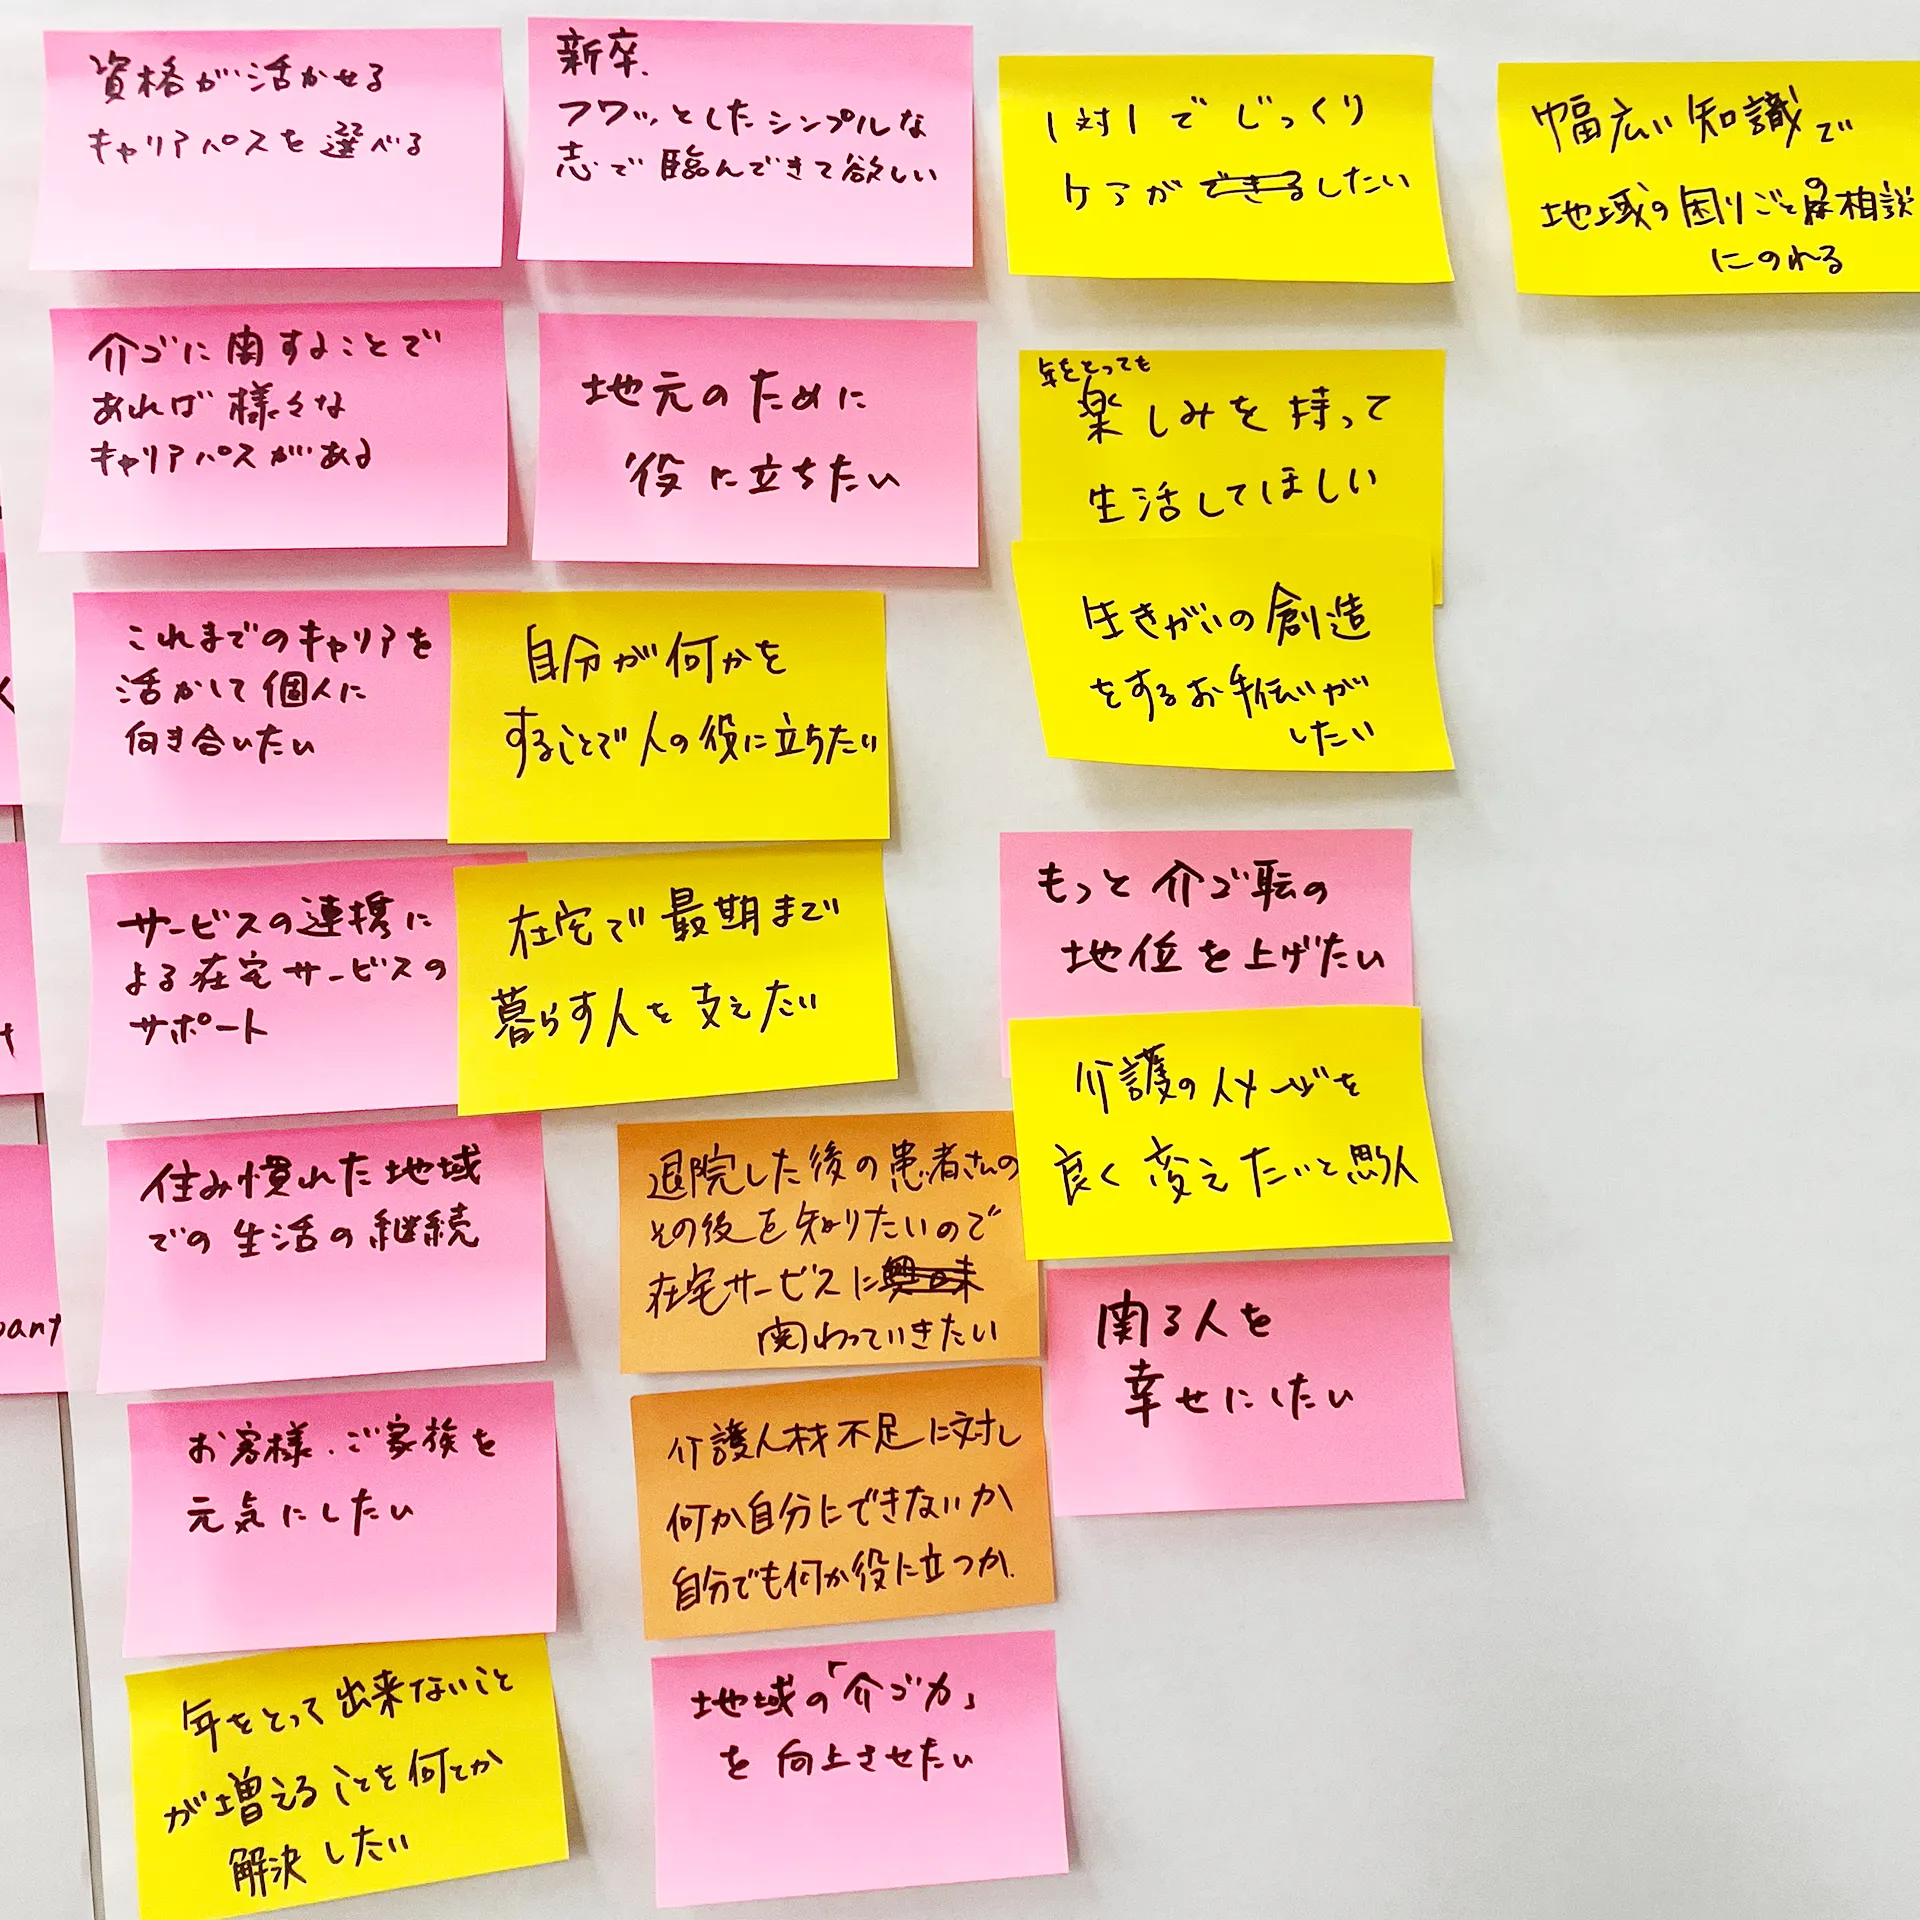 資格が活かせる
キャリアパスを選べる
介ゴに関することで
あれば様々な
キャリアパスがある
これまでのキャリアを
活かして個人に
向き合いたい
サービスの連携に
よる在宅サービスの
サポート
住み慣れた地域
での生活の継続
お客様・ご家族を
元気にしたい
年をとって出来ないこと
が増えることを何とか
解決したい
新卒.
フワッとしたシンプルな
志で臨んできて欲しい
地元のために
役に立ちたい
自分が何かを
することで人の役に立ちたい
在宅で最期まで
暮らす人を支えたい
退院した後の患者さんの
その後を知りたいので
在宅サービスに
関わっていきたい
介護人材不足に対し
何か自分にできないか
自分でも何か役に立つか.
地域の「介ゴ力」
を向上させたい
1対1でじっくり
ケアがしたい
年をとっても
楽しみを持って
生活してほしい
生きがいの創造
をするお手伝いが
したい
もっと介ゴ職の
地位を上げたい
介護のイメージを
良く変えたいと思う人
関る人を
幸せにしたい
幅広い知識で
地域の困りごとの相談
にのれる